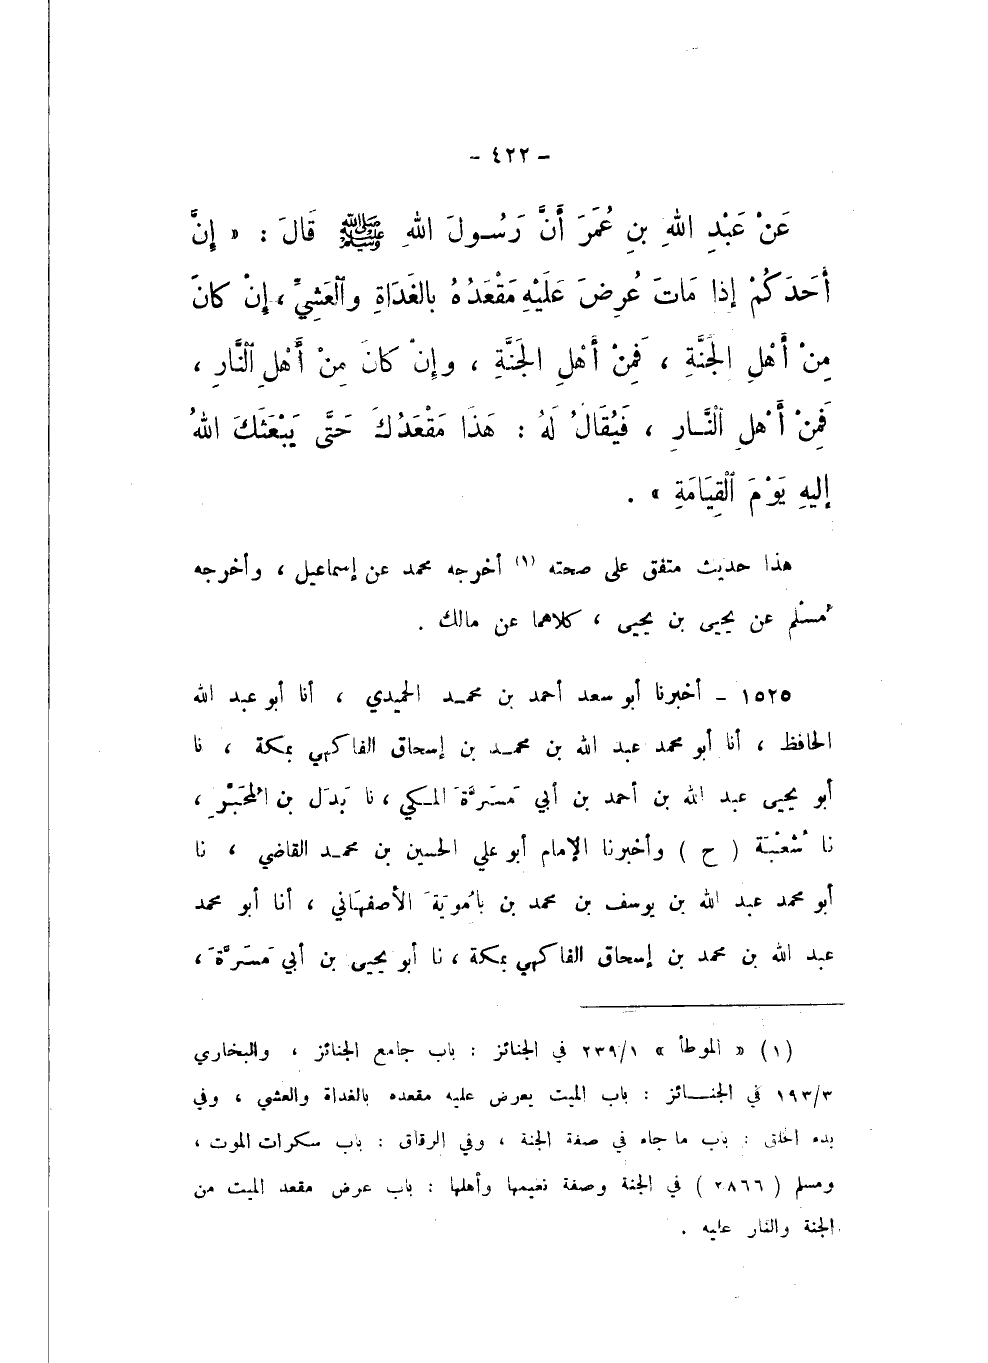 - ٤٢٢ -
عَنْ عَبْدِ اللهِ بنِ عُمَرَ أَنَّ رَسُولَ اللهِ ﷺ قَالَ : « إِنَّ
أَحَدَكُمْ إِذا مَاتَ عُرِضَ عَلَيْهِ مَقْعَدُهُ بالغَدَاةِ وٱلْعَشِيِّ ، إِنْ كانَ
مِنْ أَهْلِ الجَنَّةِ ، فَمِنْ أَهْلِ الجَنَّةِ ، وإِنْ كانَ مِنْ أَهْلِ ٱلنَّارِ ،
فَمِنْ أَهْلِ ٱلنَّارِ ، فَيُقَالُ لَهُ : هَذَا مَقْعَدُكَ حَتَّى يَبْعَثَكَ اللهُ
إليهِ يَوْمَ ٱلْقِيَامَةِ » .
هذا حديث متفق على صحته (١) أخرجه محمد عن إسماعيل ، وأخرجه
مُسْلم عن يحيى بن يحيى ، كلاهما عن مالك .
١٥٢٥ - أخبرنا أبو سعد أحمد بن محمد الحميدي ، أنا أبو عبد الله
الحافظ ، أنا أبو محمد عبد الله بن محمد بن إسحاق الفاكهي بمكة ، نا
أبو يحيى عبد الله بن أحمد بن أبي مَسَرَّةَ المكي ، نا بَدَل بن المُحَبَّرِ ،
نا شُعْبَة ( ح ) وأخبرنا الإمام أبو علي الحسين بن محمد القاضي ، نا
أبو محمد عبد الله بن يوسف بن محمد بن بامُويَةَ الأصفهَاني ، أنا أبو محمد
عبد الله بن محمد بن إسحاق الفاكهي بمكة ، نا أبو يحيى بن أبي مَسَرَّةَ ،
(١) « الموطأ » ٢٣٩/١ في الجنائز : باب جامع الجنائز ، والبخاري
١٩٣/٣ في الجنائز : باب الميت يعرض عليه مقعده بالغداة والعشي ، وفي
بدء الخلق : باب ما جاء في صفة الجنة ، وفي الرقاق : باب سكرات الموت ،
ومسلم ( ٢٨٦٦ ) في الجنة وصفة نعيمها وأهلها : باب عرض مقعد الميت من
الجنة والنار عليه .